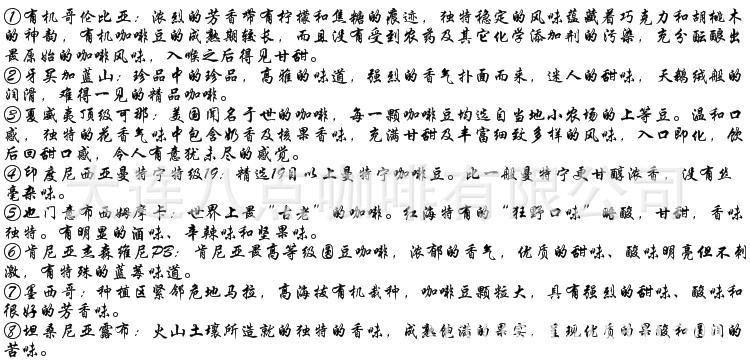 ①有机哥伦比亚：浓烈的芳香带有柠檬和焦糖的痕迹，独特稳定的风味蕴藏着巧克力和胡桃木
的神韵，有机咖啡豆的成熟期较长，而且没有受到农药及其它化学添加剂的污染，充分酝酿出
最原始的咖啡风味，入喉之后得见甘甜。
②牙买加蓝山：珍品中的珍品，高雅的味道，强烈的香气扑面而来，迷人的甜味，天鹅绒般的
润滑，难得一见的精品咖啡。
③夏威夷顶级可那：美国闻名于世的咖啡，每一颗咖啡豆均选自当地小农场的上等豆。温和口
感，独特的花香气味中包含奶香及核果香味，充满甘甜及丰富细致多样的风味，入口即化，饮
后回甜口感，令人有意犹未尽的感觉。
④印度尼西亚曼特宁特级19：精选19目以上曼特宁咖啡豆。比一般曼特宁更甘醇浓香，没有丝
毫杂味。
⑤也门意布西姆摩卡：世界上最“古老”的咖啡。红海特有的“狂野口味”略酸，甘甜，香味
独特。有明显的酒味、辛辣味和坚果味。
⑥肯尼亚杰森维尼PB：肯尼亚最高等级圆豆咖啡，浓郁的香气，优质的甜味、酸味明亮但不刺
激，有特殊的蓝莓味道。
⑦墨西哥：种植区紧邻危地马拉，高海拔有机栽种，咖啡豆颗粒大，具有强烈的甜味、酸味和
很好的芳香味。
⑧坦桑尼亚露布：火山土壤所造就的独特的香味，成熟饱满的果实，呈现优质的果酸和圆润的
苦味。